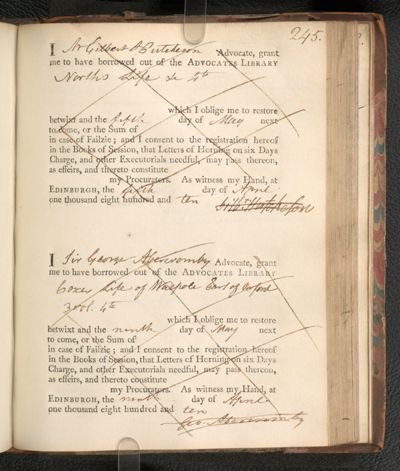 245.
I Mr Gilbert Hutcheson Advocate, grant
me to have borrowed out of the ADVOCATES LIBRARY
North's Life &c 4to
which I oblige me to restore
betwixt and the fifth day of May next
to come, or the Sum of
in case of Failzie; and I consent to the registration hereof
in the Books of Session, that Letters of Horning on six Days
Charge, and other Executorials needful, may pass thereon,
as effeirs, and thereto constitute
my Procurators. As witness my Hand, at
EDINBURGH, the fifth day of April
one thousand eight hundred and ten
I Sir George Abercromby Advocate, grant
me to have borrowed out of the ADVOCATES LIBRARY
Coxes Life of Walpole Earl of Orford
3 vol. 4to
which I oblige me to restore
betwixt and the ninth day of May next
to come, or the Sum of
in case of Failzie; and I consent to the registration hereof
in the Books of Session, that Letters of Horning on six Days
Charge, and other Executorials needful, may pass thereon,
as effeirs, and thereto constitute
my Procurators. As witness my Hand, at
EDINBURGH, the ninth day of April
one thousand eight hundred and ten
Geo. Abercromby